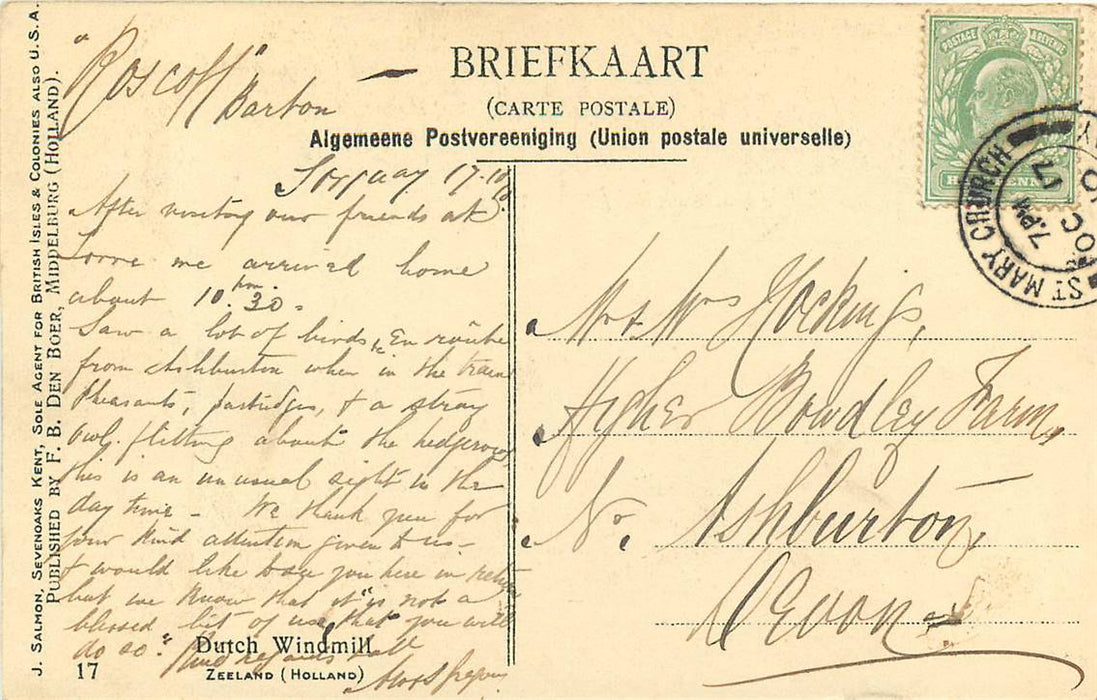 J. SALMON, SEVENOAKS KENT, SOLE AGENT FOR BRITISH ISLES & COLONIES ALSO U.S.A.
PUBLISHED BY F. B. DEN BOER, MIDDELBURG (HOLLAND).
BRIEFKAART
(CARTE POSTALE)
Algemeene Postvereeniging (Union postale universelle)
POSTAGE & REVENUE
HALFPENNY
ST MARY CHURCH
7.PM
17
OC
"Roscoff"
Barton
Torquay 17.10
After visiting our friends at
Lorne we arrived home
about 10.30 pm.
Saw a lot of birds, En route
from Ashburton when in the train
Pheasants, partridges, & a stray
owl flitting about the hedgerows
this is an unusual sight in the
day time - We thank you for
your kind attention given to us -
& would like to see you here in return
but we know that it "is not a
blessed bit of use, that you will
do so." Kind regards to all
Dutch Windmill
ZEELAND (HOLLAND)
17
Mr & Mrs Hockings,
Higher Bowdley Farm,
Nr. Ashburton,
Devon